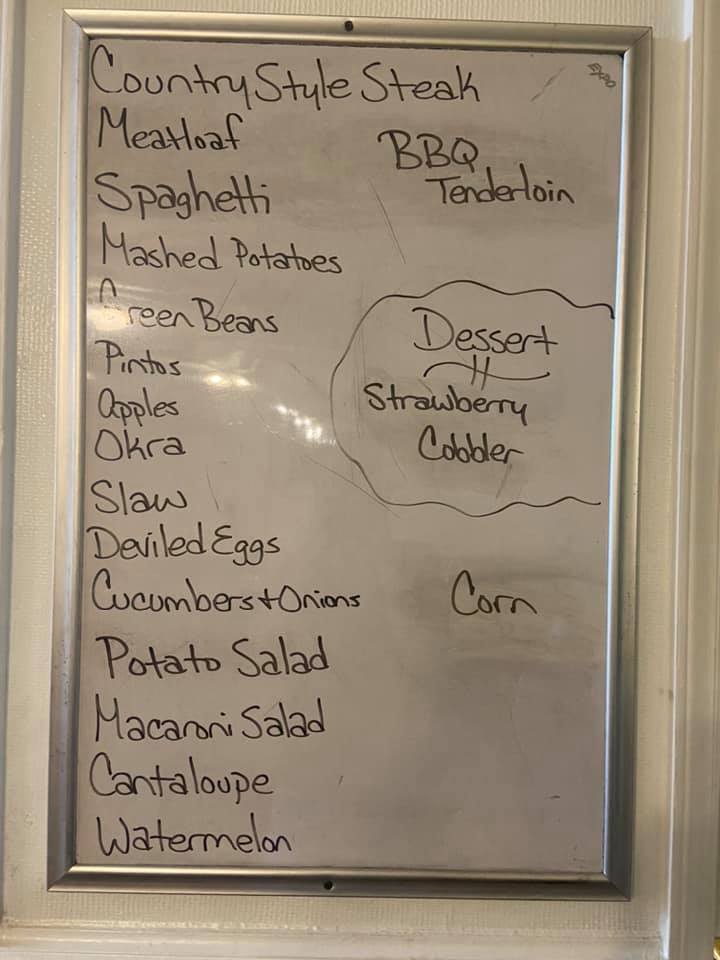 Country Style Steak
EXPO
Meatloaf
BBQ
Tenderloin
Spaghetti
Mashed Potatoes
Green Beans
Dessert
Pintos
Apples
Strawberry
Okra
Cobbler
Slaw
Deviled Eggs
Cucumbers + Onions
Corn
Potato Salad
Macaroni Salad
Cantaloupe
Watermelon